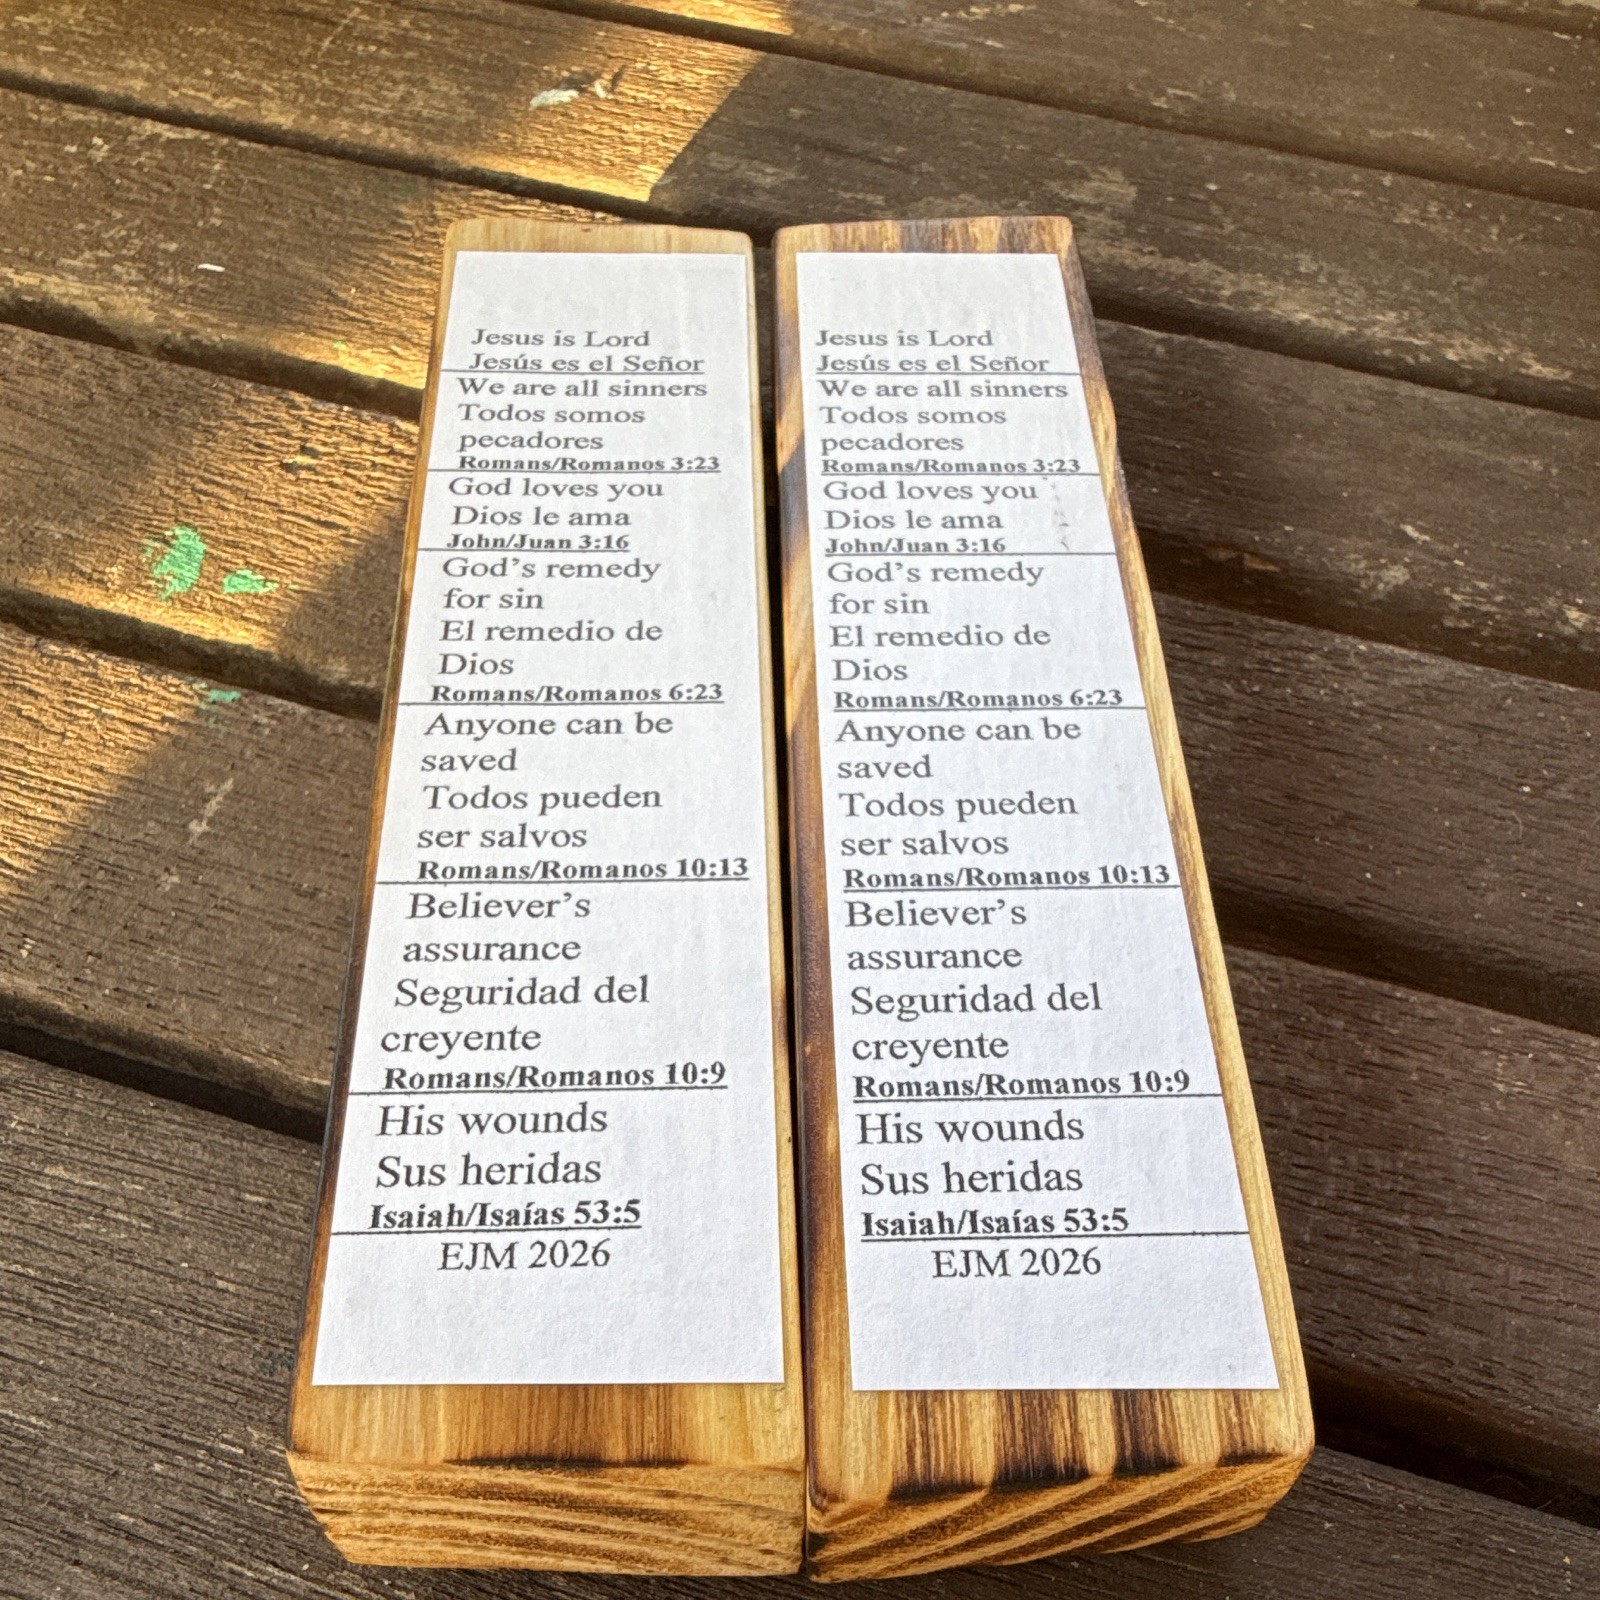 Jesus is Lord
Jesús es el Señor
We are all sinners
Todos somos
pecadores
Romans/Romanos 3:23
God loves you
Dios le ama
John/Juan 3:16
God's remedy
for sin
El remedio de
Dios
Romans/Romanos 6:23
Anyone can be
saved
Todos pueden
ser salvos
Romans/Romanos 10:13
Believer's
assurance
Seguridad del
creyente
Romans/Romanos 10:9
His wounds
Sus heridas
Isaiah/Isaías 53:5
EJM 2026
Jesus is Lord
Jesús es el Señor
We are all sinners
Todos somos
pecadores
Romans/Romanos 3:23
God loves you
Dios le ama
John/Juan 3:16
God's remedy
for sin
El remedio de
Dios
Romans/Romanos 6:23
Anyone can be
saved
Todos pueden
ser salvos
Romans/Romanos 10:13
Believer's
assurance
Seguridad del
creyente
Romans/Romanos 10:9
His wounds
Sus heridas
Isaiah/Isaías 53:5
EJM 2026